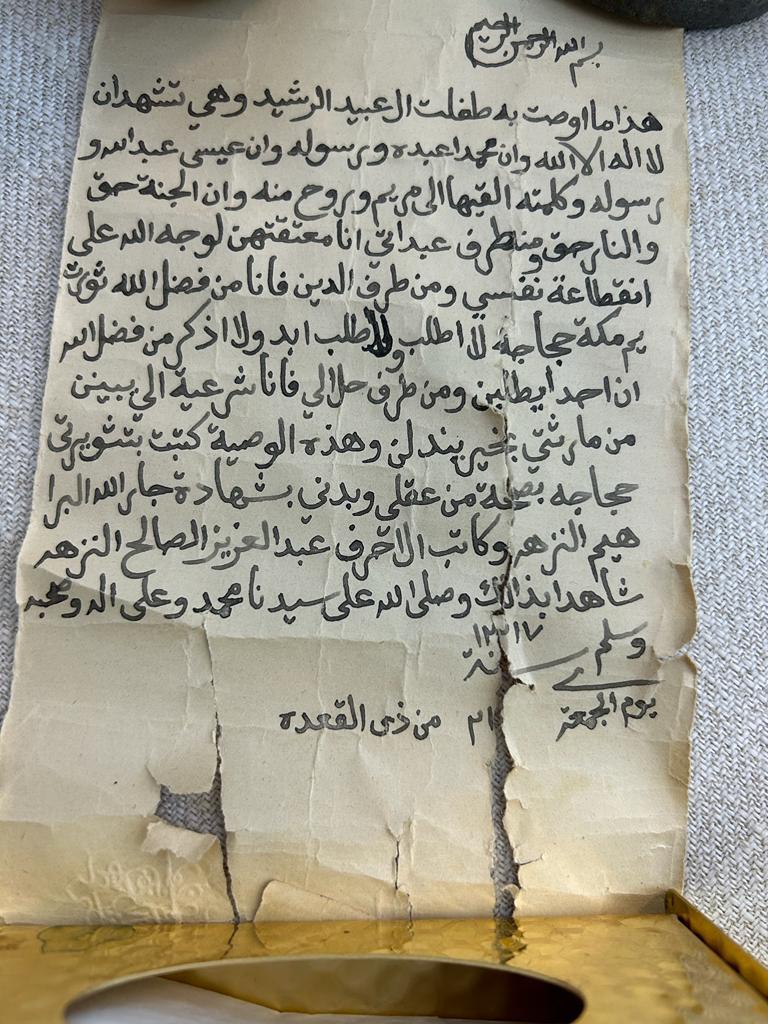 بسم الله الرحمن الرحيم
هذا ما اوصت به طفلت ال عبيد الرشيد وهي تشهد ان
لا اله الا الله وان محمدا عبده ورسوله وان عيسى عبد الله و
رسوله وكلمته القيها الى مريم وروح منه وان الجنة حق
والنار حق ومنطرف عبداتي انا معتقتهن لوجه الله على
انقطاعة نفسي ومن طرف الدين فانا من فضل الله
يم مكة حجاجة لا اطلب ولا اطلب ابد ولا اذكر من فضل الله
ان احد ايطلبن ومن طرف حلالي فانا شرعية الي يبينن
من مارثتي بخير يبندلن وهذه الوصية كتبت بتثويرتي
حجاجه بصحة من عقلي وبدني بشهادة جار الله البرا
هيم النزهه وكاتب الاحرف عبد العزيز الصالح النزهه
شاهدا بذالك وصلى الله على سيدنا محمد وعلى اله وصحبه
وسلم سنة
يوم الجمعة ٢١ من ذى القعده